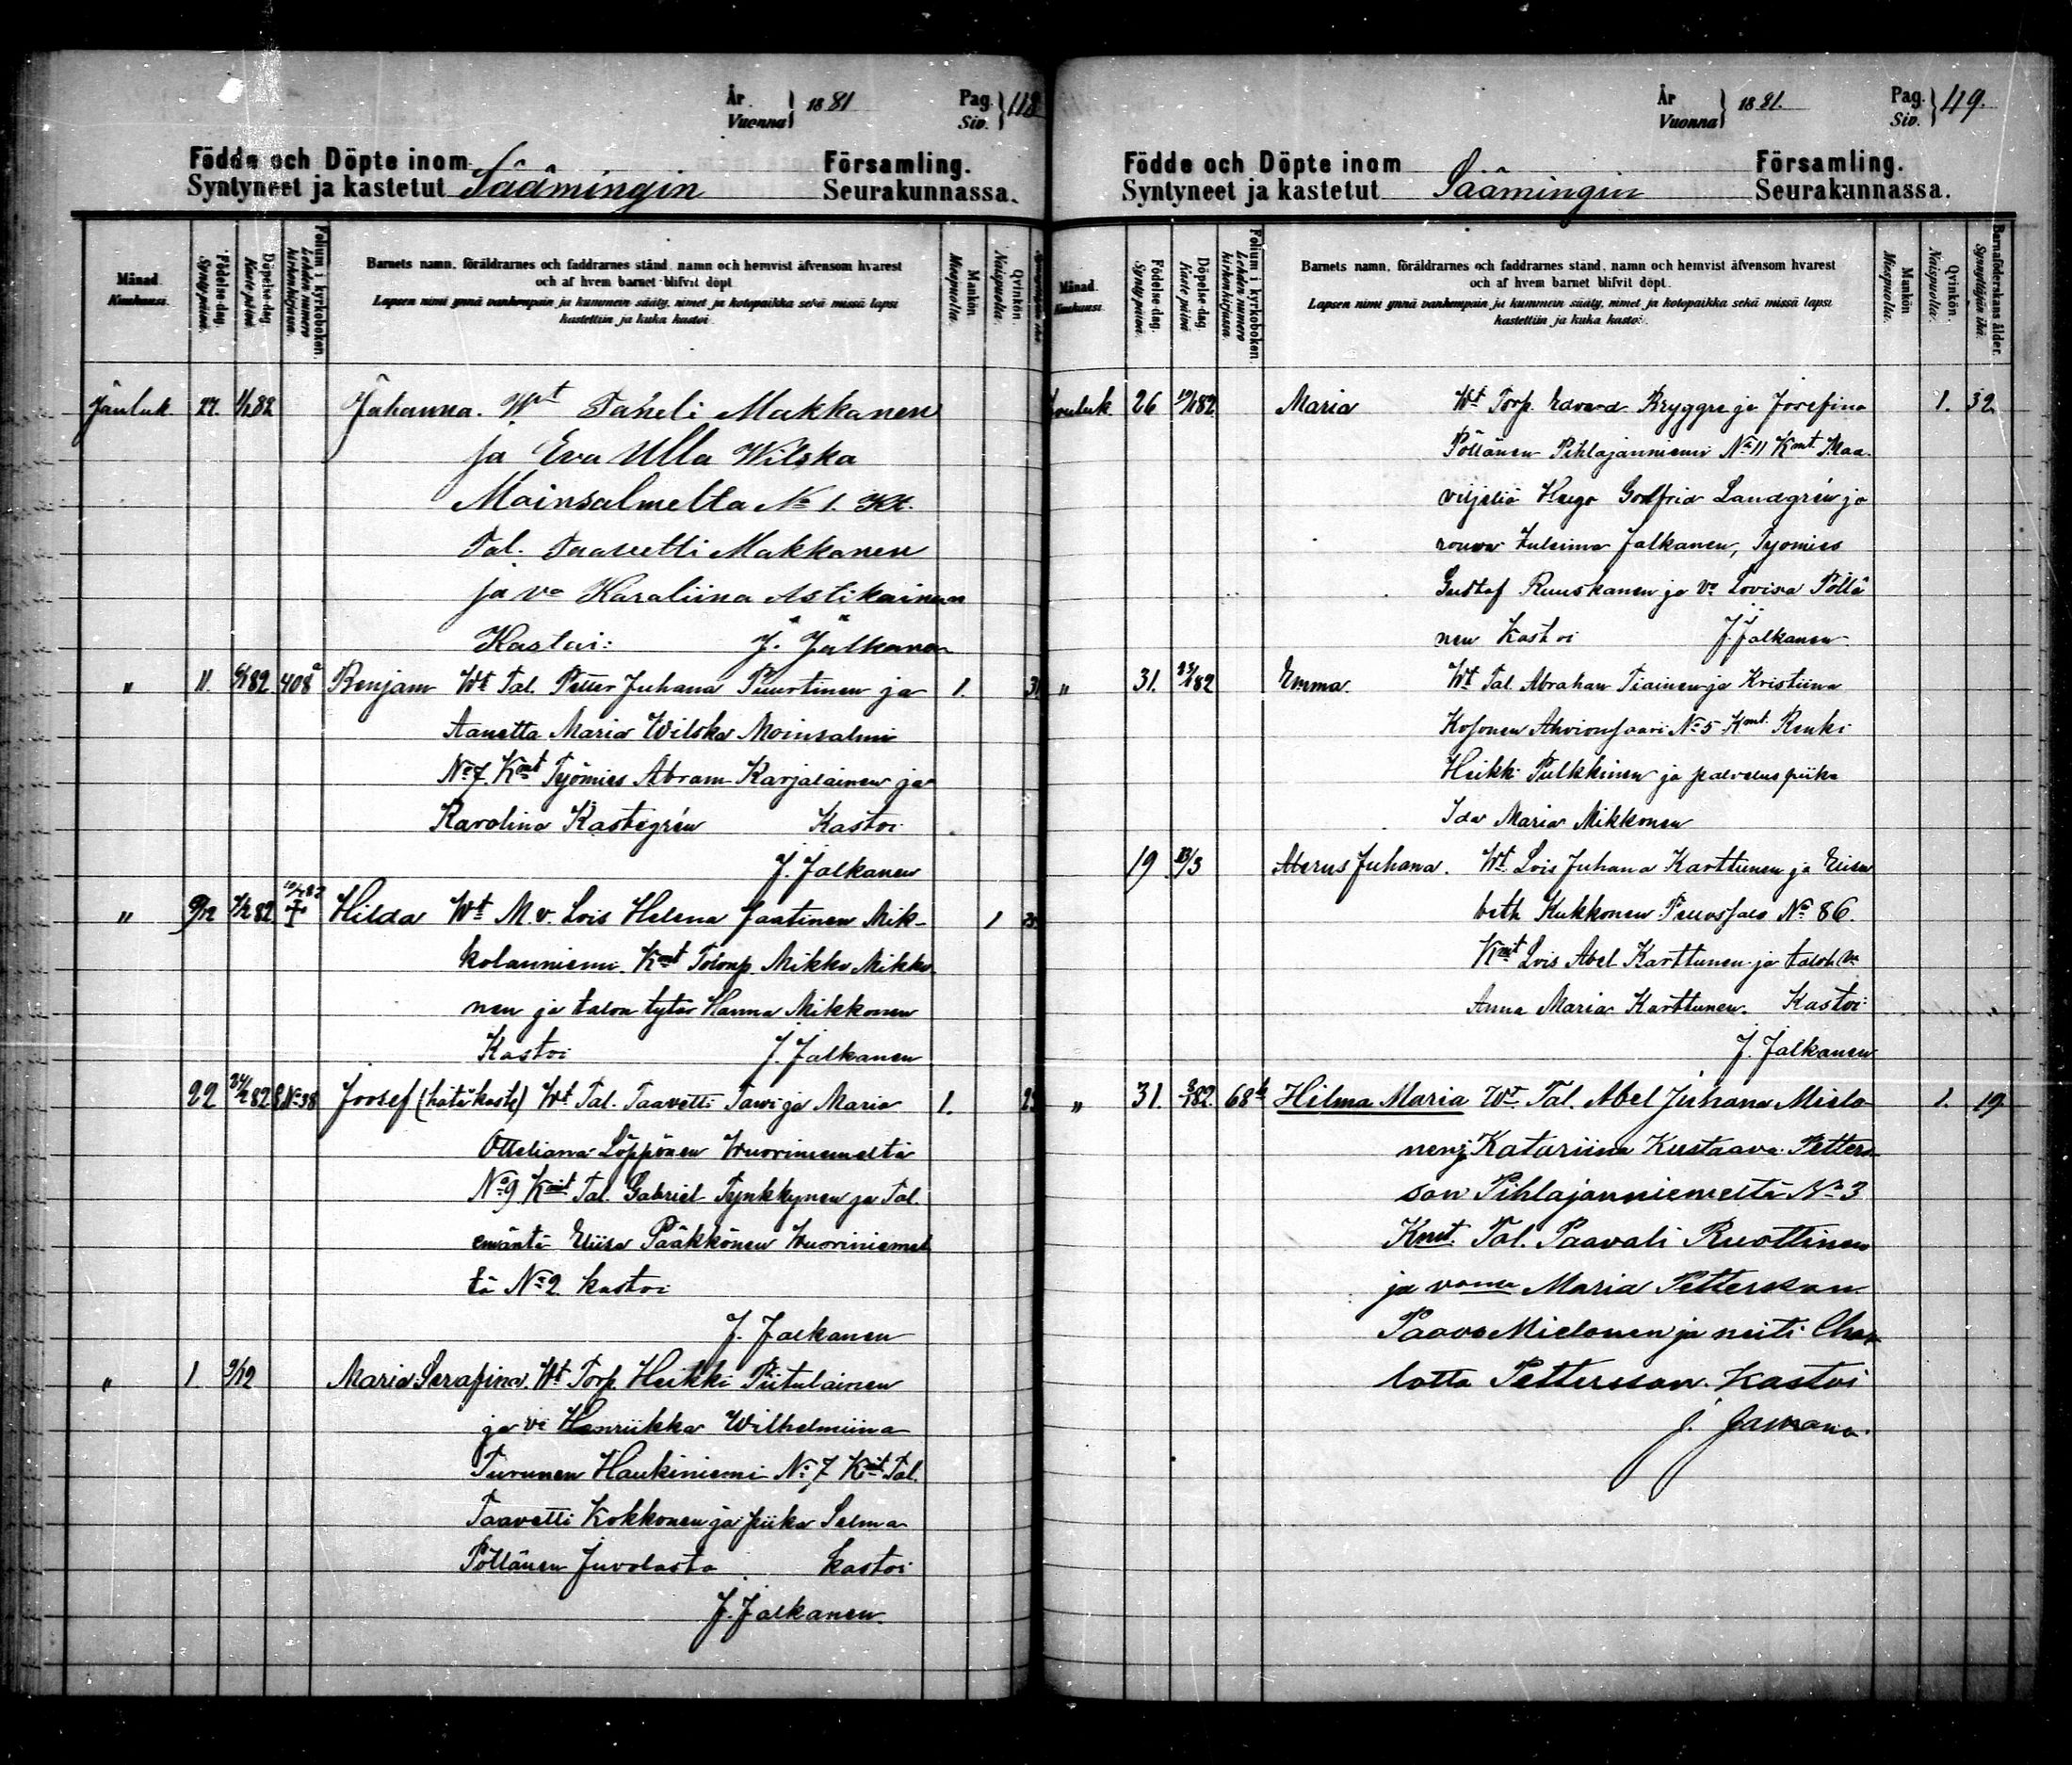 År
Vuonna } 1881
Pag.
Siv. } 118
Födde och Döpte inom
Syntyneet ja kastetut Säämingin
Församling.
Seurakunnassa.
Månad
Kuukausi.
Födelse-dag.
Syntypäivä.
Döpelse-dag.
Kaste päivä
Folium i kyrkoboken.
Lehden numero
kirkonkirjassa.
Barnets namn, föräldrarnes och faddrarnes stånd, namn och hemvist äfvensom hvarest
och af hvem barnet blifvit döpt
Lapsen nimi ynnä vanhempain ja kummein sääty, nimet ja kotopaikka sekä missä lapsi
kastettiin ja kuka kastoi
Mankön
Miespuolia.
Qvinkön.
Naispuolia.
Jouluk. 27. 1/1 82 Johanna. Wt Taneli Makkanen
ja Eva Ulla Wilska
Moinsalmelta No 1. Kt.
Tal. Taavetti Makkanen
ja vo Karaliina Astikainen
Kastoi: J. Jalkanen
" 11. 6/1 82 408 Benjam Wt Tal. Petter Juhana Puurtinen ja 1. 31
Aanetta Maria Wilska Moinsalmi
No 7. Kmt Työmies Abram Karjalainen ja
Karolina Kastegrén Kastoi
J. Jalkanen
" 9/12 82 Hilda Wt M. v. Lois Helena Jaatinen Mik- 1
kolanniemi Kmt Mikko Mikko
nen ja talon tytär Hanna Mikkonen
Kastoi J. Jalkanen
22 24/2 82 No 38 Joosef (hätäkaste) Wt Tal. Taavetti Tawi ja Maria 1.
Otteliana Löppönen Wuoriniemeltä
No 9 Kmt Tal. Gabriel Tynkkynen ja Tal.
emäntä Eliisa Pääkkönen Wuoriniemel
tä No 2 kastoi
J. Jalkanen
" 1 9/12 Maria Serafina. Wt Torp. Heikki Piitulainen
ja vi Henriikka Wilhelmiina
Turunen Haukiniemi No 7 Kmt Tal.
Taavetti Kokkonen ja piika Selma
Pöllänen Juvolasta kastoi
J. Jalkanen.
År
Vuonna } 1881.
Pag.
Siv. } 119.
Födde och Döpte inom
Syntyneet ja kastetut Säämingin
Församling.
Seurakunnassa.
Månad.
Kuukausi
Födelse-dag.
Syntypäivä.
Döpelse-dag.
Kaste päivä
Folium i kyrkoboken.
Lehden numero
kirkonkirjassa.
Barnets namn, föräldrarnes och faddrarnes stånd, namn och hemvist äfvensom hvarest
och af hvem barnet blifvit döpt.
Lapsen nimi ynnä vanhempain ja kummein sääty, nimet ja kotopaikka sekä missä lapsi
kastettiin ja kuka kastoi.
Mankön
Miespuolia.
Qvinkön.
Naispuolia.
Barnaföderskans ålder.
Synyttäjän ikä.
Jouluk 26 82 Maria Wt Torp. Edvard Bryggre ja Josefina 1. 32
Pöllänen Pihlajanniemi No 11 Kmt Maa.
viljeliä Hugo Godfrid Landgrén ja
rouva Jalkanen, Työmies
Gustaf Ruuskanen ja vo Lovisa Pöllä
nen Kastoi J. Jalkanen
" 31. 82 Emma. Wt Tal. Abraham Tiainen ja Kristiina
Kosonen Ahvionsaari No 5 Kmt. Renki
Heikki Pulkkinen ja palvelus piika
Ida Maria Mikkonen
19 Juhana. Wt. Lois Juhana Karttunen ja Elisa
beth Kukkonen No 86.
Kmt Lois Abel Karttunen ja
Anna Maria Karttunen. Kastoi
J. Jalkanen
" 31. 82. 68 Hilma Maria Wt Tal. Abel Juhana Mielo 1. 19.
nen j. Katariina Kustaava Petters
son Pihlajanniemeltä No 3
Kmt. Tal. Paavali Ruottinen
ja Maria Pettersson
Paavo Mielonen ja neiti Char
lotta Pettersson. Kastoi